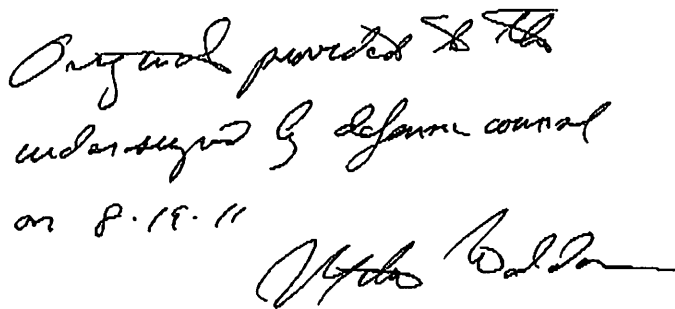 Original provided to the
undersigned by defense counsel
on 8.19.11